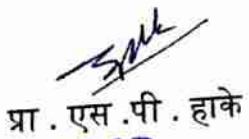 प्रा . एस .पी . हाके